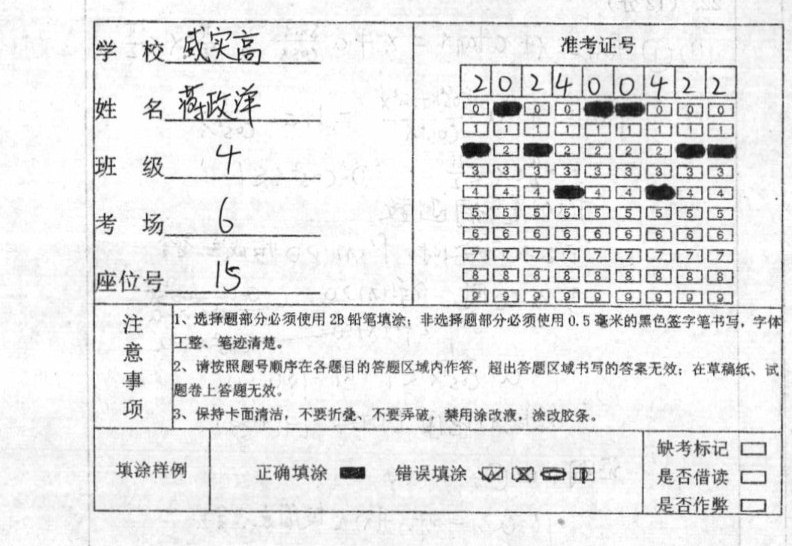 学 校 威实高
姓 名 蒋政洋
班 级 4
考 场 6
座位号 15
准考证号
2 0 2 4 0 0 4 2 2
0 0 0 0 0 0
1 1 1 1 1 1 1 1 1
2 2 2 2 2
3 3 3 3 3 3 3 3 3
4 4 4 4 4 4 4
5 5 5 5 5 5 5 5 5
6 6 6 6 6 6 6 6 6
7 7 7 7 7 7 7 7 7
8 8 8 8 8 8 8 8 8
9 9 9 9 9 9 9 9 9
注意事项
1、选择题部分必须使用 2B 铅笔填涂；非选择题部分必须使用 0.5 毫米的黑色签字笔书写，字体
工整、笔迹清楚。
2、请按照题号顺序在各题目的答题区域内作答，超出答题区域书写的答案无效；在草稿纸、试
题卷上答题无效。
3、保持卡面清洁，不要折叠、不要弄破，禁用涂改液，涂改胶条。
填涂样例 正确填涂 错误填涂
缺考标记
是否借读
是否作弊